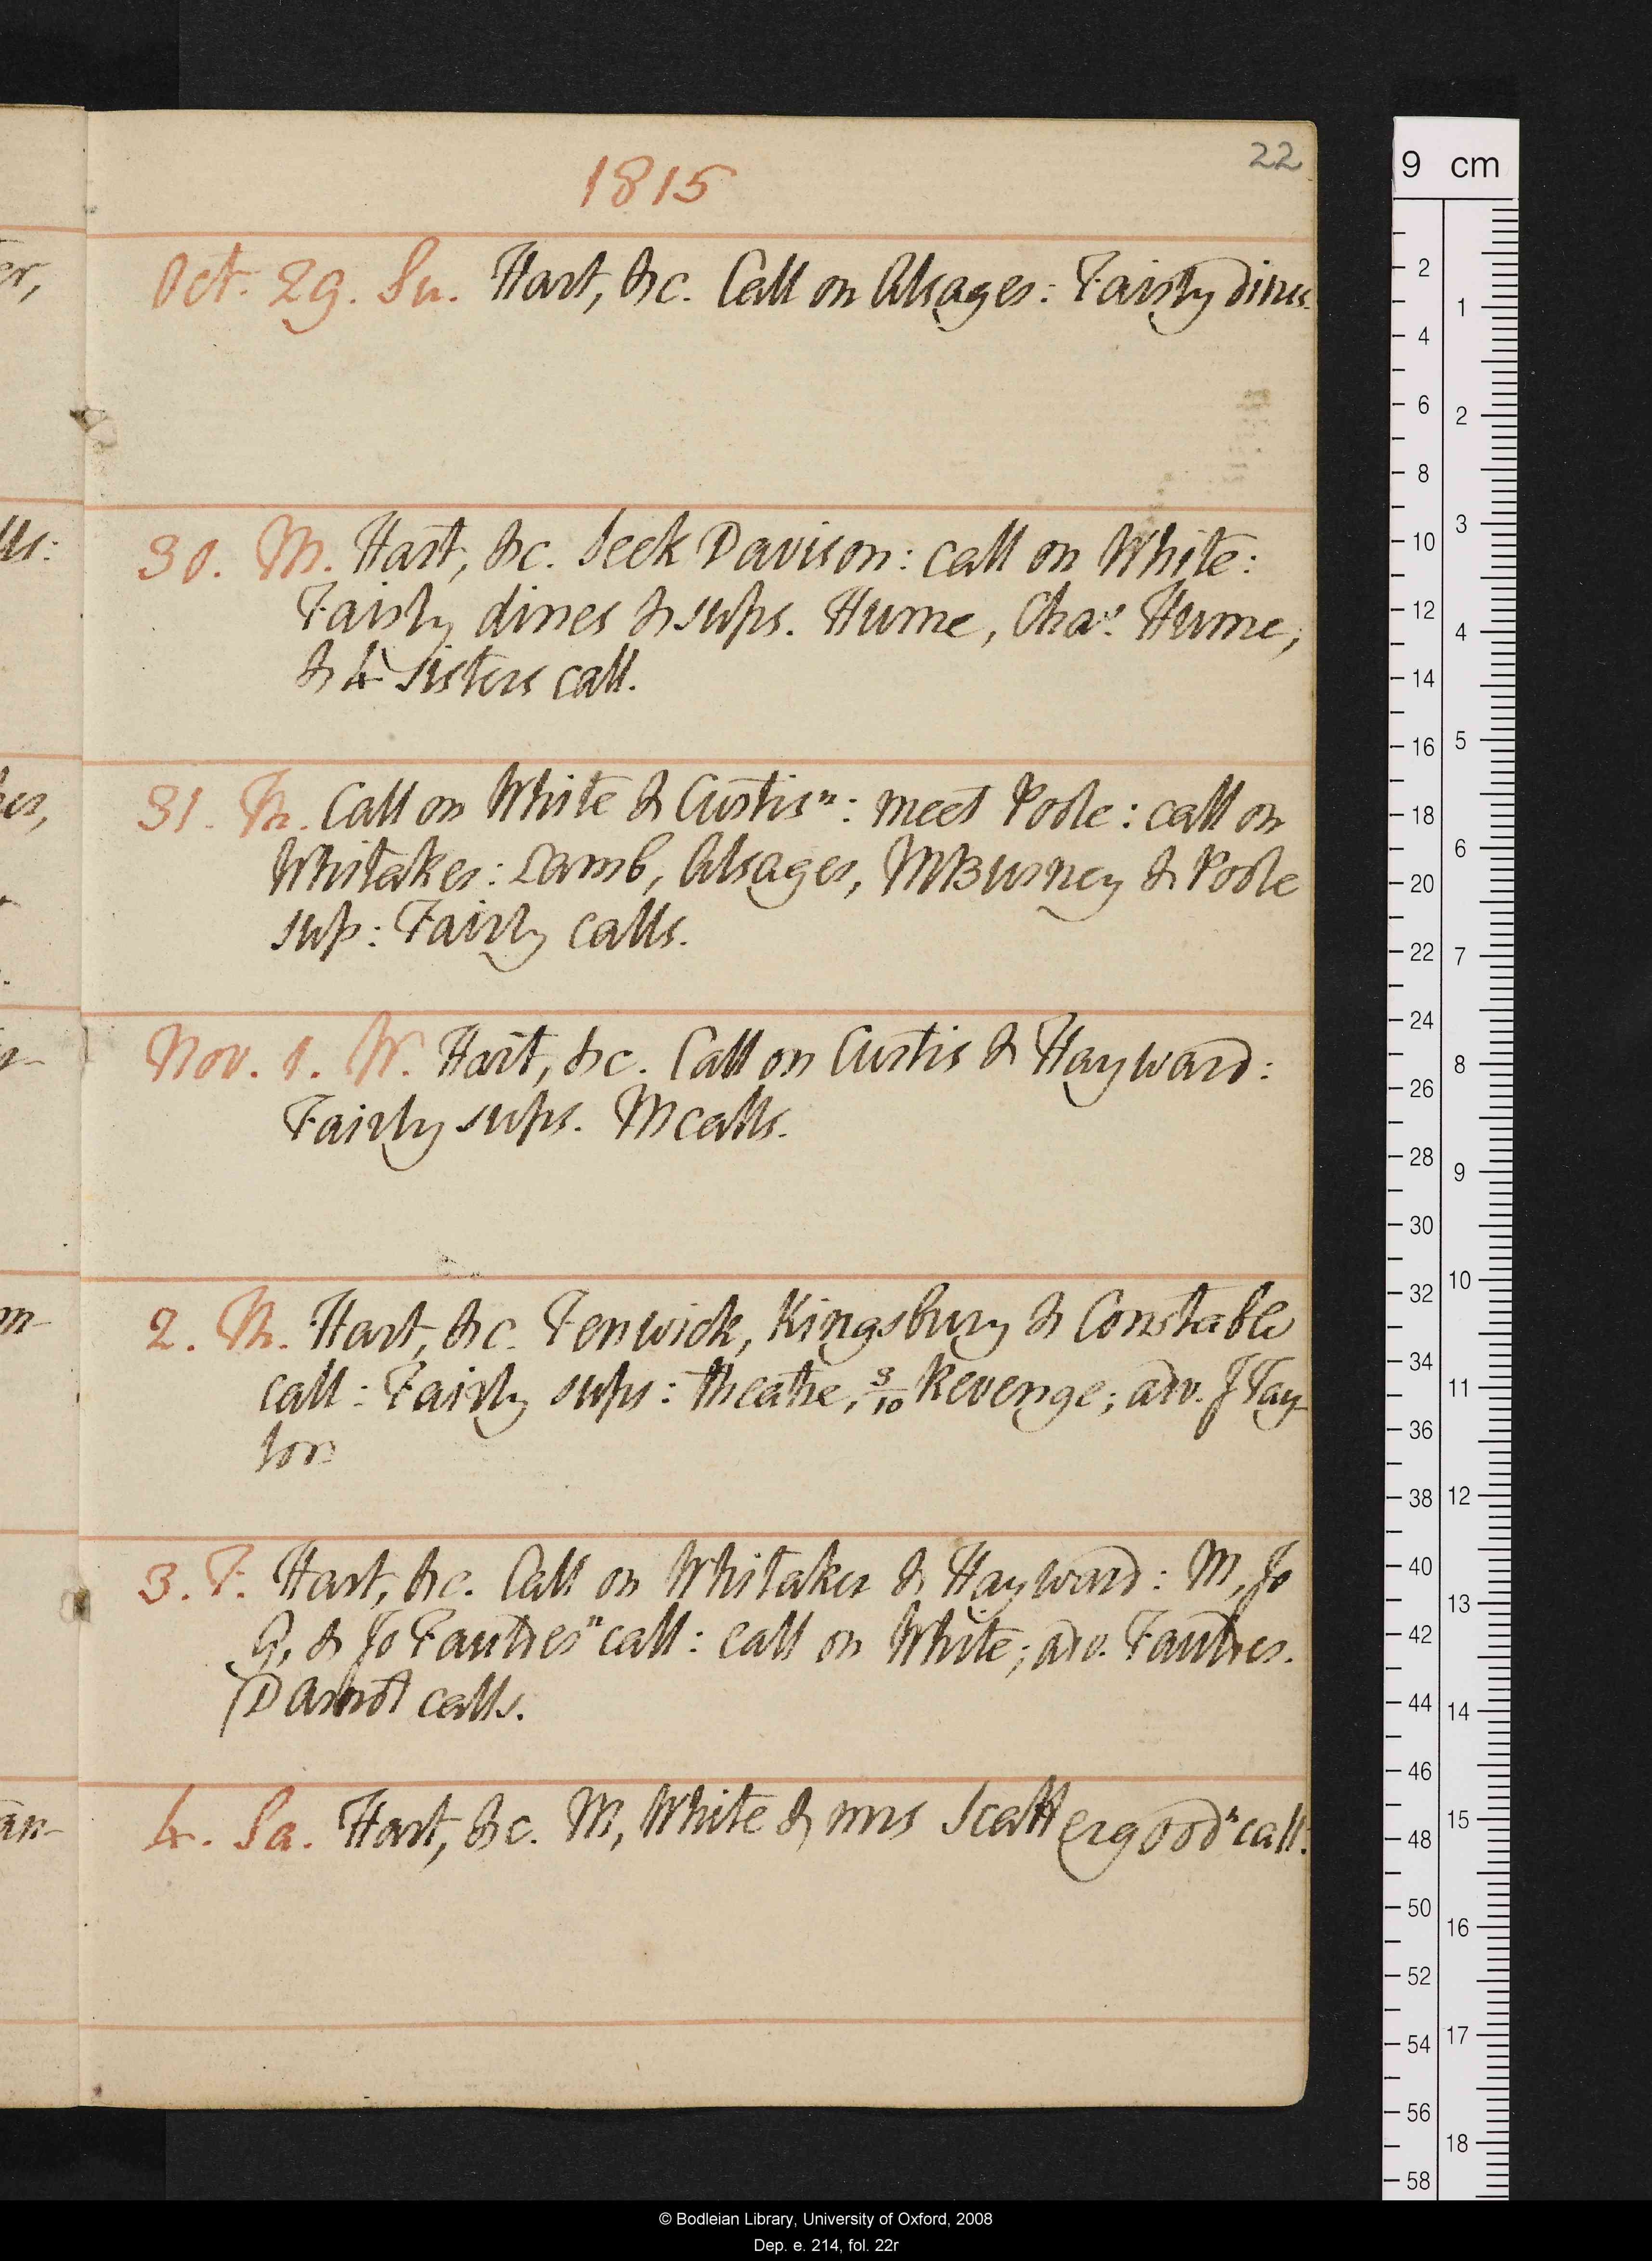 22
1815
Oct. 29. Su. Hart, &c. Call on Alsager: Fairly dines.
30. M. Hart, &c. Seek Davison: call on White:
Fairly dines & sups. Hume, Chas. Hume,
& 4 sisters call.
31. Tu. Call on White & Curtis n: meet Poole: call on
Whitaker: Lamb, Alsager, MBurney & Poole
sup: Fairly calls.
Nov. 1. W. Hart, &c. Call on Curtis & Hayward:
Fairly sups. M calls.
2. Th. Hart, &c. Fenwick, Kingsbury & Constable
call: Fairly sups: theatre, 3/10 Revenge; adv. J Tay-
lor.
3. F. Hart, &c. Call on Whitaker & Hayward: M, Jo
G, & Jo Fautres n call: call on White; adv. Fautres.
call.
4. Sa. Hart, &c. M, White & mrs Scattergood n call.
er,
lls:
an-
9 cm
2
4
6
8
10
12
14
16
18
20
22
24
26
28
30
32
34
36
38
40
42
44
46
48
50
52
54
56
58
1
2
3
4
5
6
7
8
9
10
11
12
13
14
15
16
17
18
© Bodleian Library, University of Oxford, 2008
Dep. e. 214, fol. 22r